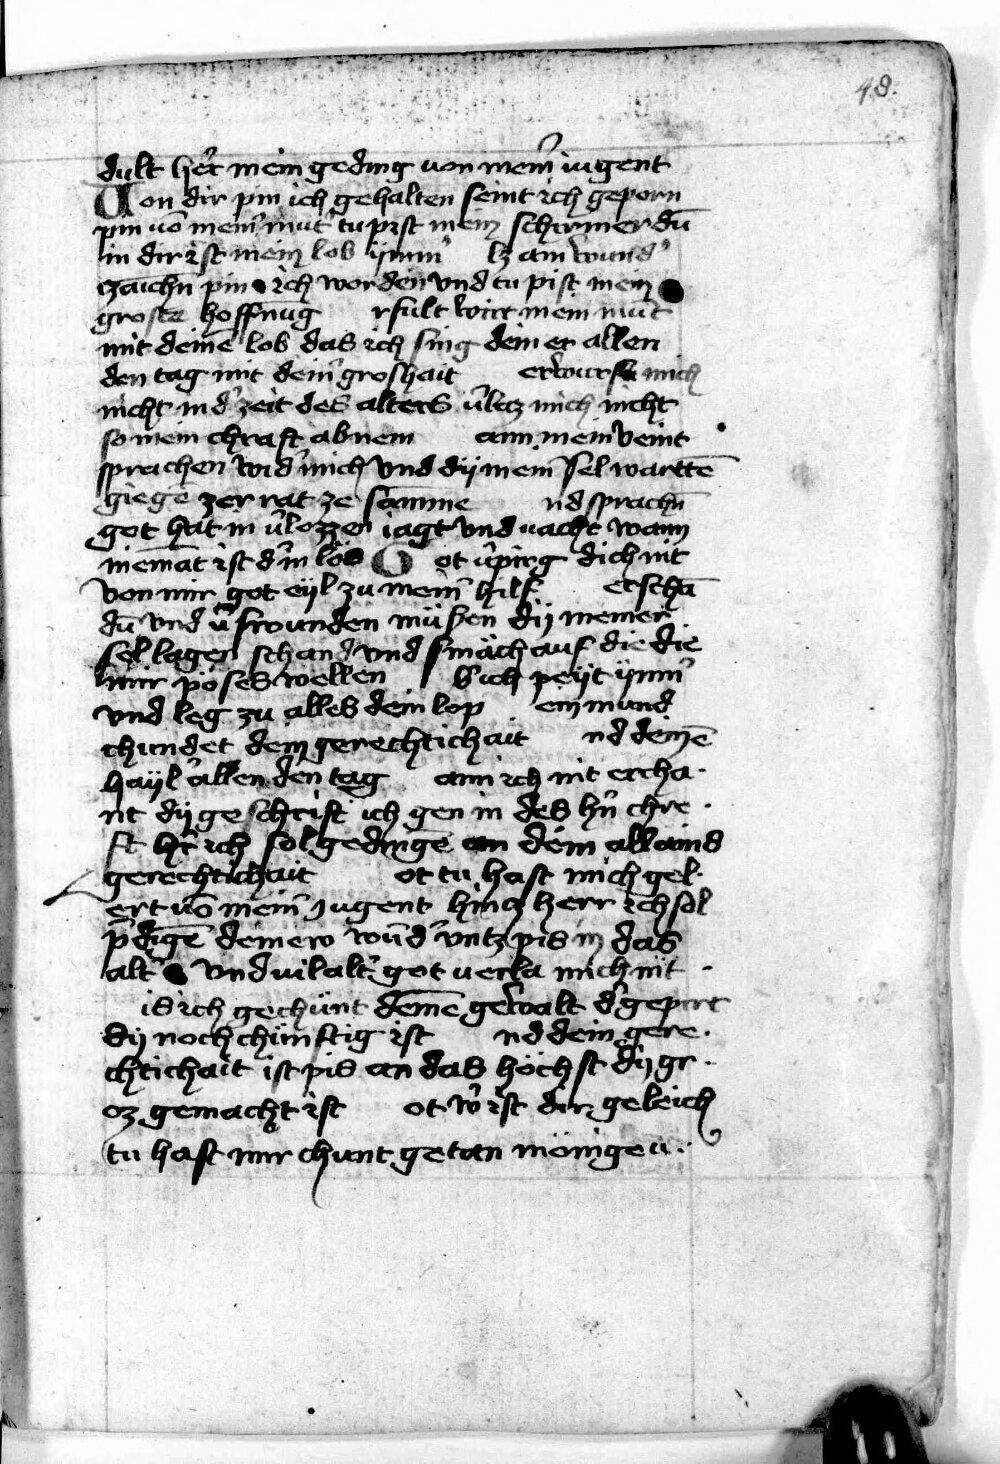 48.
dult her̄ mein geding uon mein̄ iugent
Uon dir pin ich gehalten seint ich geporn
pin uō mein̄ mut̄ tu pist mein schermer dū
in dir ist mein lob ÿmm̄ lz am wund̄
zaichn̄ pin ich worden vnd tu pist mein
groste hoffnūg rfult wirt mein mūt
mit deinē lob das ich sing deiner allen
den tag mit dein̄ groshait erwurf mich
nicht in d̄ zeit des alters v̄laz mich nicht
so mein chraft abnem ann mein veint
sprachen wid̄ mich vnd dÿ mein̄ sel warttē
giegē zer rat ze somme nd sprachn̄
got hat in v̄lozzen iagt vnd uacht wann
niemāt ist d̄ in lös Got v̄pirg dich nit
von mir got eÿl zu mein̄ hilf erschā
dū vnd v̄swunden müssen dÿ meiner
sel lagen schand vnd smäch auf die die
mir pöses wellen b̄ ich peÿt ÿmm̄
vnd leg zu alles dein lop ein mund
chundet dein gerechtichait nd deinē
haÿl allen den tag ann ich nit ercha·
nt dÿ geschrift ich gen in des hn̄ chre·
ft hr̄ ich sol gedingē an dein allains
gerechtichait ot tu hast mich gel·
ert uō mein̄ iugent hincz herr ich sol
p̄digē deinew wūd̄ vntz pis in das
alt̄ vnd uil alt̄ got uerla mich nit·
is ich gechünt deinē gewalt d̄ gepurt
dÿ noch chümftig ist nd dein gere·
chtichait ist pis an das höchst dÿ gr·
oz gemacht ist ot w̄ ist dir geleich
tu hast mir chunt getan mönigeu·